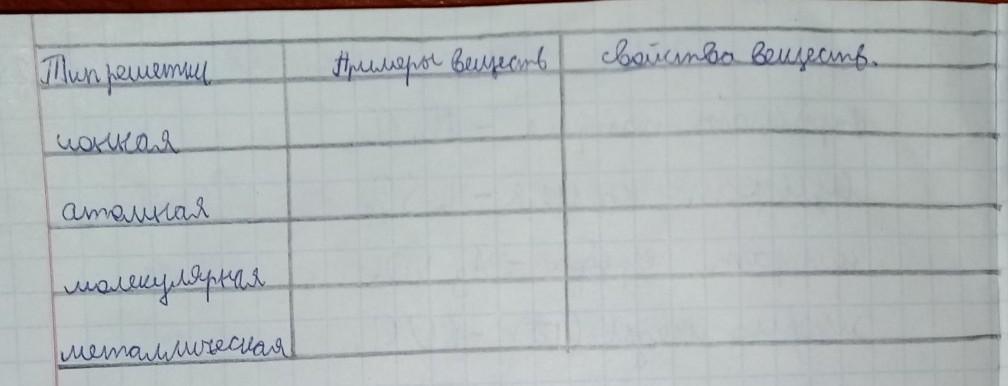 Тип решетки Примеры веществ Свойства веществ.
ионная
атомная
молекулярная
металлическая